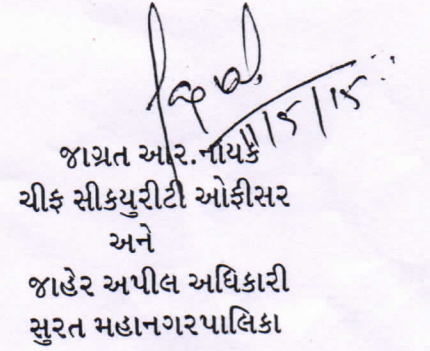 જાગ્રત આર.નાયક
ચીફ સીકયુરીટી ઓફીસર
અને
જાહેર અપીલ અધિકારી
સુરત મહાનગરપાલિકા